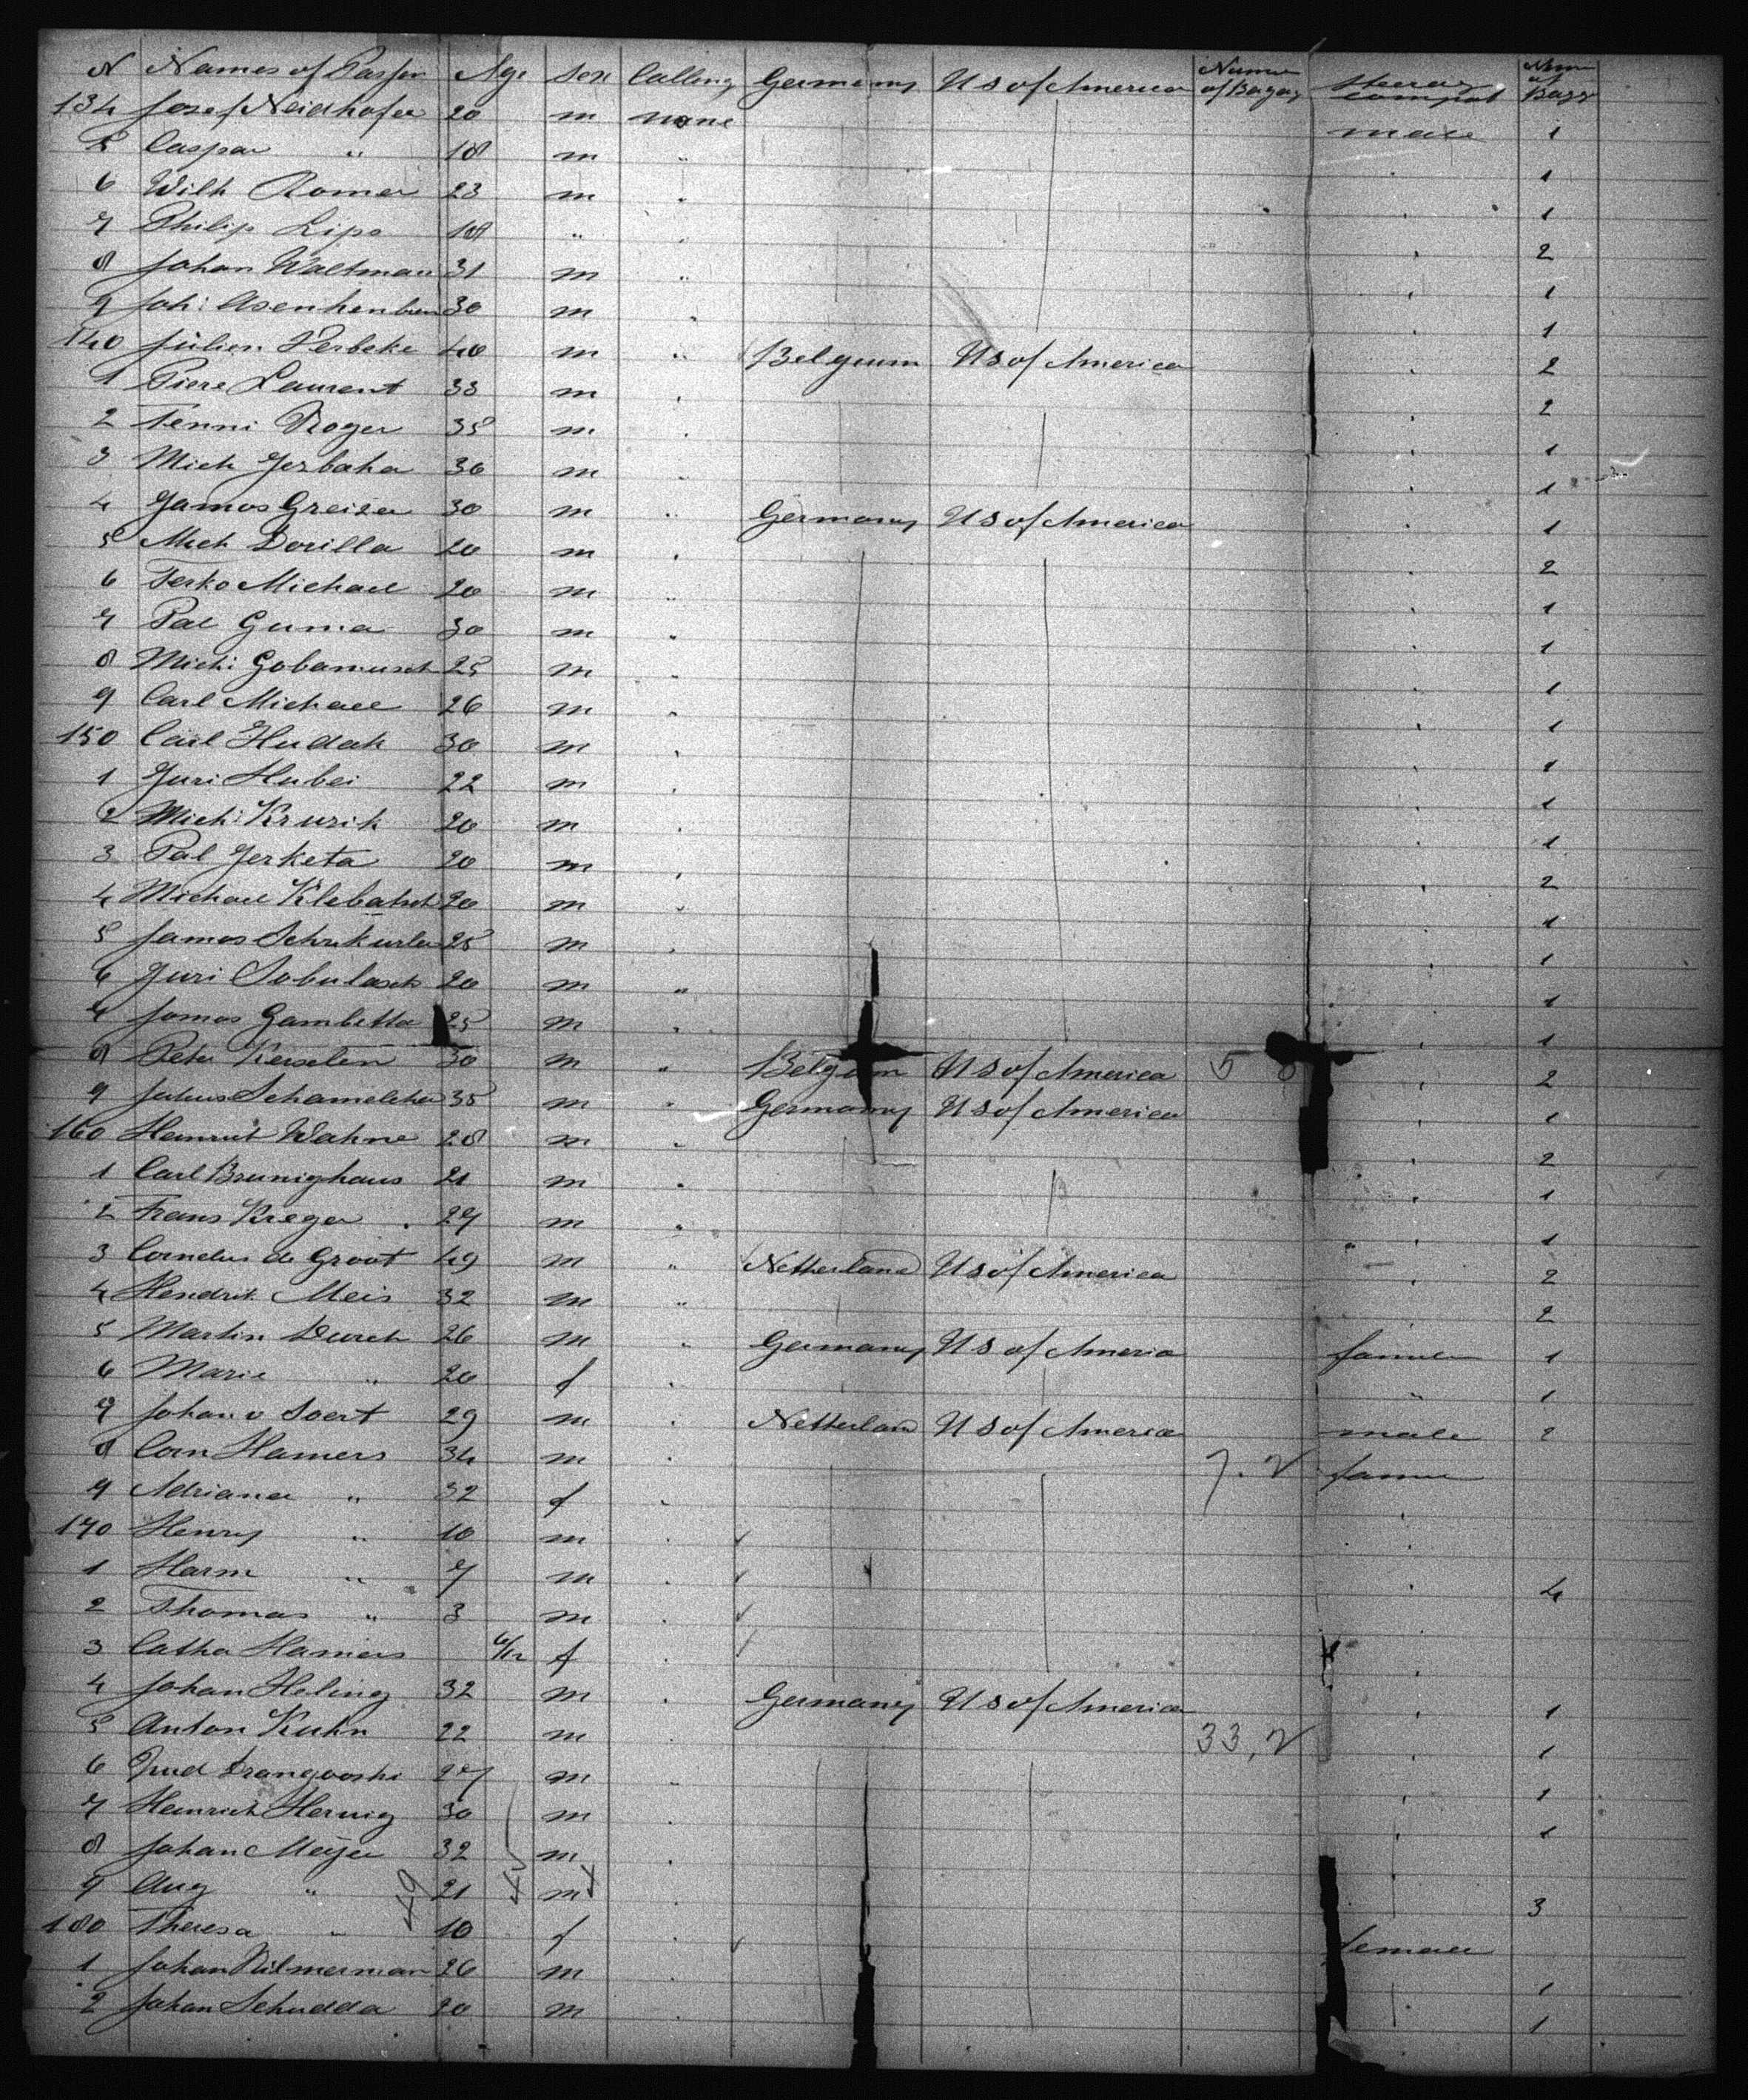 N Names of Passen Age Sex Calling Germany US of America Name of Bagag Steerag compat Num of Bagg
134 Josef Neidhofer 20 m none male 1
5 Caspar " 18 m " 1
6 Wilh Romer 23 m " 1
7 Philip Lips 18 " " 2
8 Johan Waltman 31 m " 1
9 Joh: 30 m " 1
140 Julien Verbeke 40 m " Belgium US of America 2
1 Piere Laurent 33 m " 2
2 Fenni Roger 35 m " 1
3 Mich Jerbaha 36 m " 1
4 Janos Greizer 30 m " Germany US of America 1
5 Mich Dorilla 20 m " 2
6 Ferko Michael 20 m " 1
7 Pal Guma 30 m " 1
8 Mich: Gobamusch 25 m " 1
9 Carl Michael 26 m " 1
150 Carl Hudak 30 m " 1
1 Juri Hubei 22 m " 1
2 Mich: Krurik 20 m " 1
3 Pal Jerketa 20 m " 2
4 Michael Klebatsch 20 m " 1
5 Janos 25 m " 1
6 Juri Sobulasch 20 m " 1
7 Janos Gambetta 25 m " 1
8 Peter Kerselen 30 m " Belgium US of America 5 2
9 Julius Schamelcher 35 m " Germany US of America 1
160 Heinrich Wahne 28 m " 2
1 Carl Brunighaus 21 m " 1
2 Frans Kreger 27 m " 1
3 Cornelus de Groot 49 m " Netherland US of America 2
4 Hendrik Meis 32 m " 2
5 Martin Durch 26 m " Germany US of Ameria 1
6 Marie " 20 f " " 1
7 Johan v Soert 29 m " Netterland US of America male 2
8 Corn Hamers 34 m " 7.2
9 Adriana " 32 f "
170 Henry " 10 m "
1 Harm " 7 m " 4
2 Thomas " 3 m "
3 Catha Hamers 6/12 f "
4 Johan Heling 32 m " Germany US of America 1
5 Anton Kuhn 22 m " 33,2 1
6 27 m " 1
7 Heinrich Hernig 30 m " 1
8 Johan Meyer 32 m "
9 Aug " 21 m " 3
180 Theresa " 10 f " female
1 Johan 26 m " 1
2 Johan Schudda 20 m " 1
49